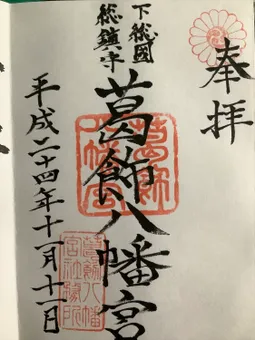 奉拝
下総國
総鎮守
葛飾八幡宮
平成二十四年十一月十一日
葛飾八幡宮
葛飾八幡
宮社務所